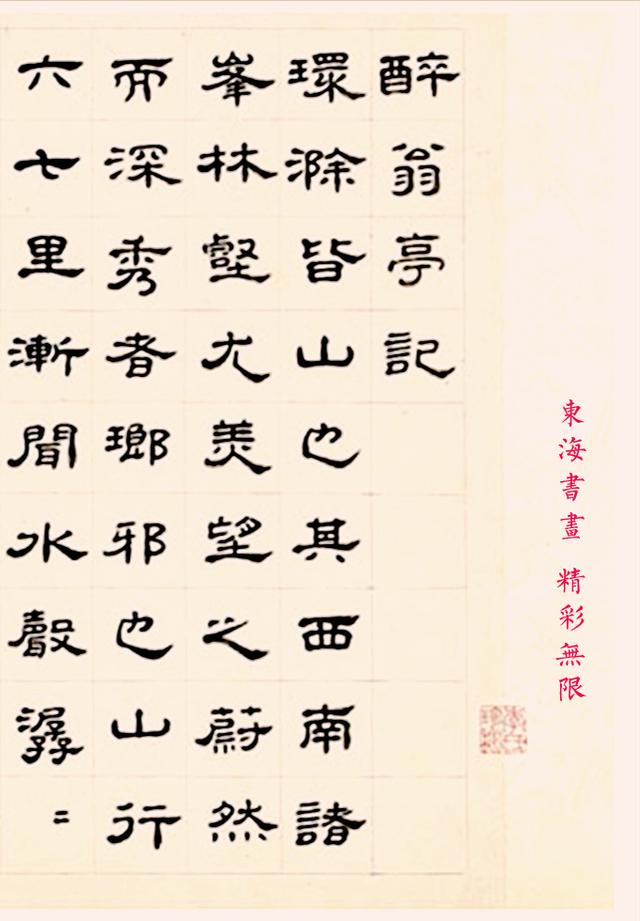 東海書畫 精彩無限
醉翁亭記
環滁皆山也其西南諸
峯林壑尤羙望之蔚然
而深秀者瑯邪也山行
六七里漸聞水聲潺〻